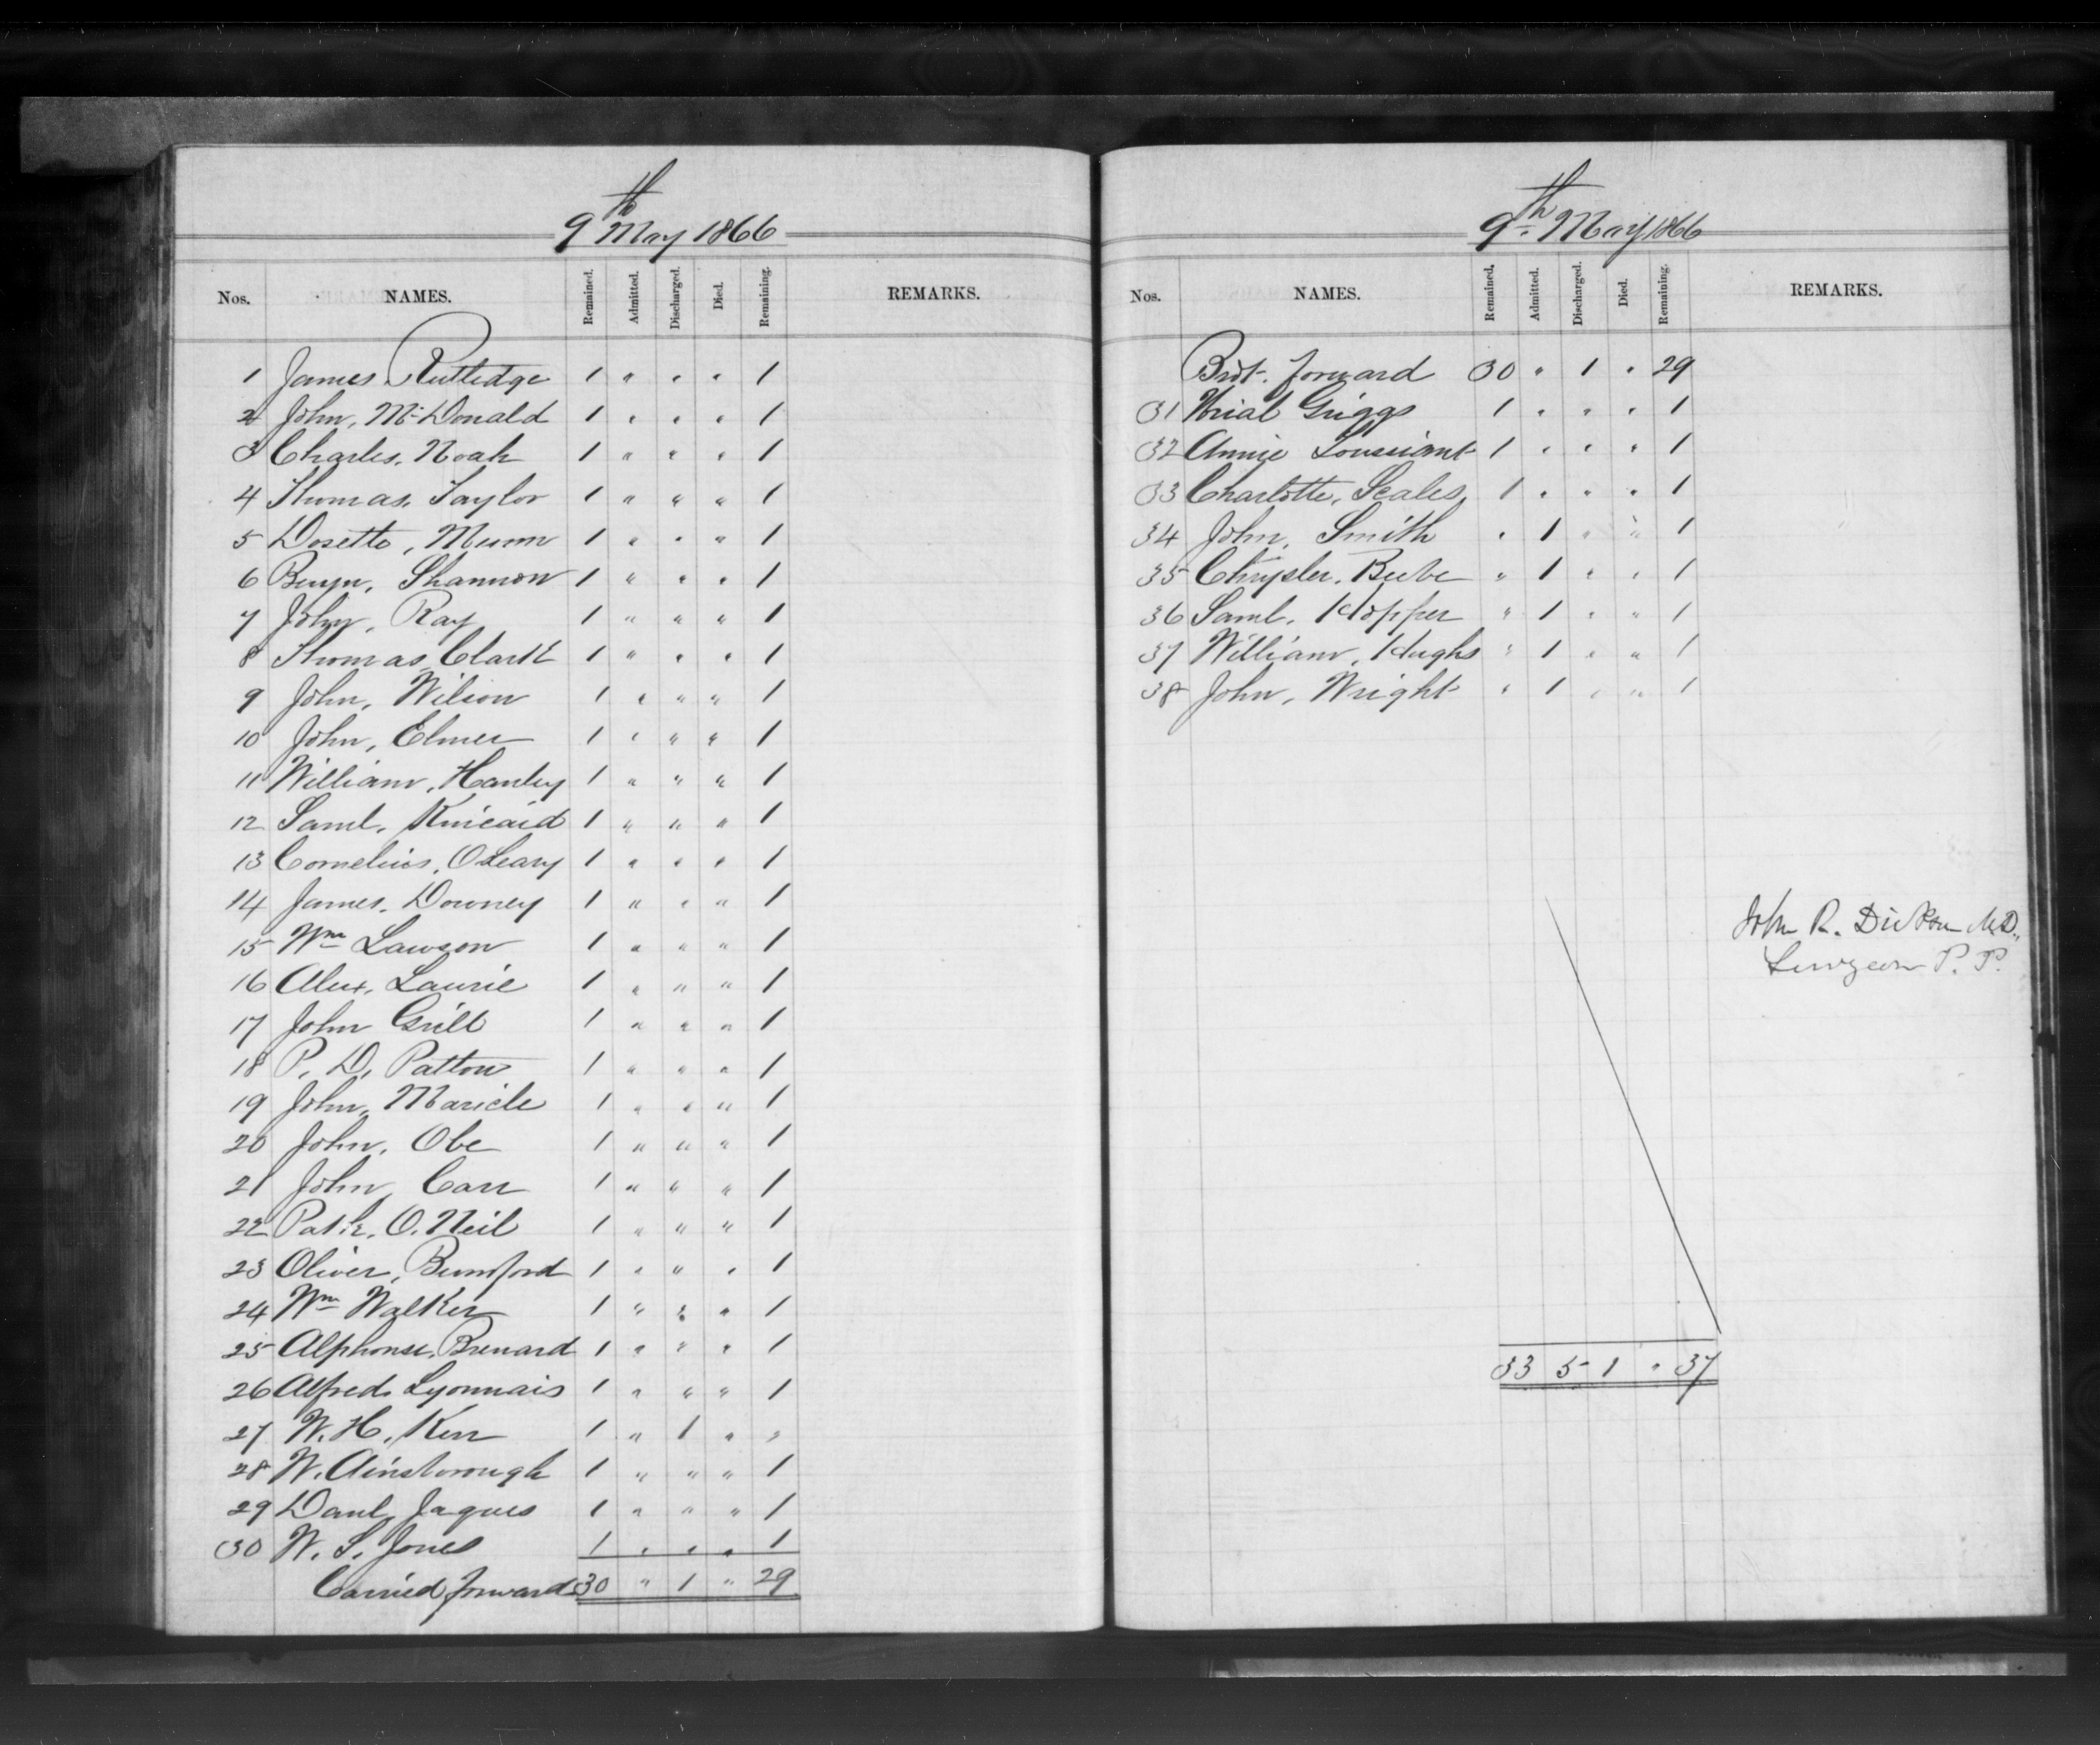 9th May 1866
Nos. NAMES. Remained. Admitted. Discharged. Died. Remaining. REMARKS.
1 James Rutledge 1 " " " 1
2 John, McDonald 1 " " " 1
3 Charles, Noah 1 " " " 1
4 Thomas, Taylor 1 " " " 1
5 Dosette, Munn 1 " " " 1
6 Benjn, Shannon 1 " " " 1
7 John, Ray 1 " " " 1
8 Thomas, Clark 1 " " " 1
9 John, Wilson 1 " " " 1
10 John, Elmer 1 " " " 1
11 William, Hanley 1 " " " 1
12 Saml. Kincaid 1 " " " 1
13 Cornelius, OLeary 1 " " " 1
14 James, Downey 1 " " " 1
15 Wm Lawson 1 " " " 1
16 Alex, Laurie 1 " " " 1
17 John Grill 1 " " " 1
18 P. D, Patton 1 " " " 1
19 John, Maricle 1 " " " 1
20 John, Obe 1 " " " 1
21 John, Carr 1 " " " 1
22 Patk, O.Neil 1 " " " 1
23 Oliver, Bumford 1 " " " 1
24 Wm Walker 1 " " " 1
25 Alphonse, Brenard 1 " " " 1
26 Alfred, Lyonnais 1 " " " 1
27 W. H, Kerr 1 " 1 " "
28 W. Ainsborough 1 " " " 1
29 Danl, Jaques 1 " " " 1
30 W. S. Jones 1 " " " 1
Carried forward 30 " 1 " 29
9th May 1866
Nos. NAMES. Remained. Admitted. Discharged. Died. Remaining. REMARKS.
Brot. forward 30 " 1 " 29
31 Urial Griggs 1 " " " 1
32 Annie 1 " " " 1
33 Charlotte, Scales, 1 " " " 1
34 John, Smith " 1 " " 1
35 Chrysler, Beebe " 1 " " 1
36 Saml. Hopper " 1 " " 1
37 William, Hughs " 1 " " 1
38 John, Wright " 1 " " 1
John R. Dickson M.D.,
Surgeon P. P.
33 5 1 " 37